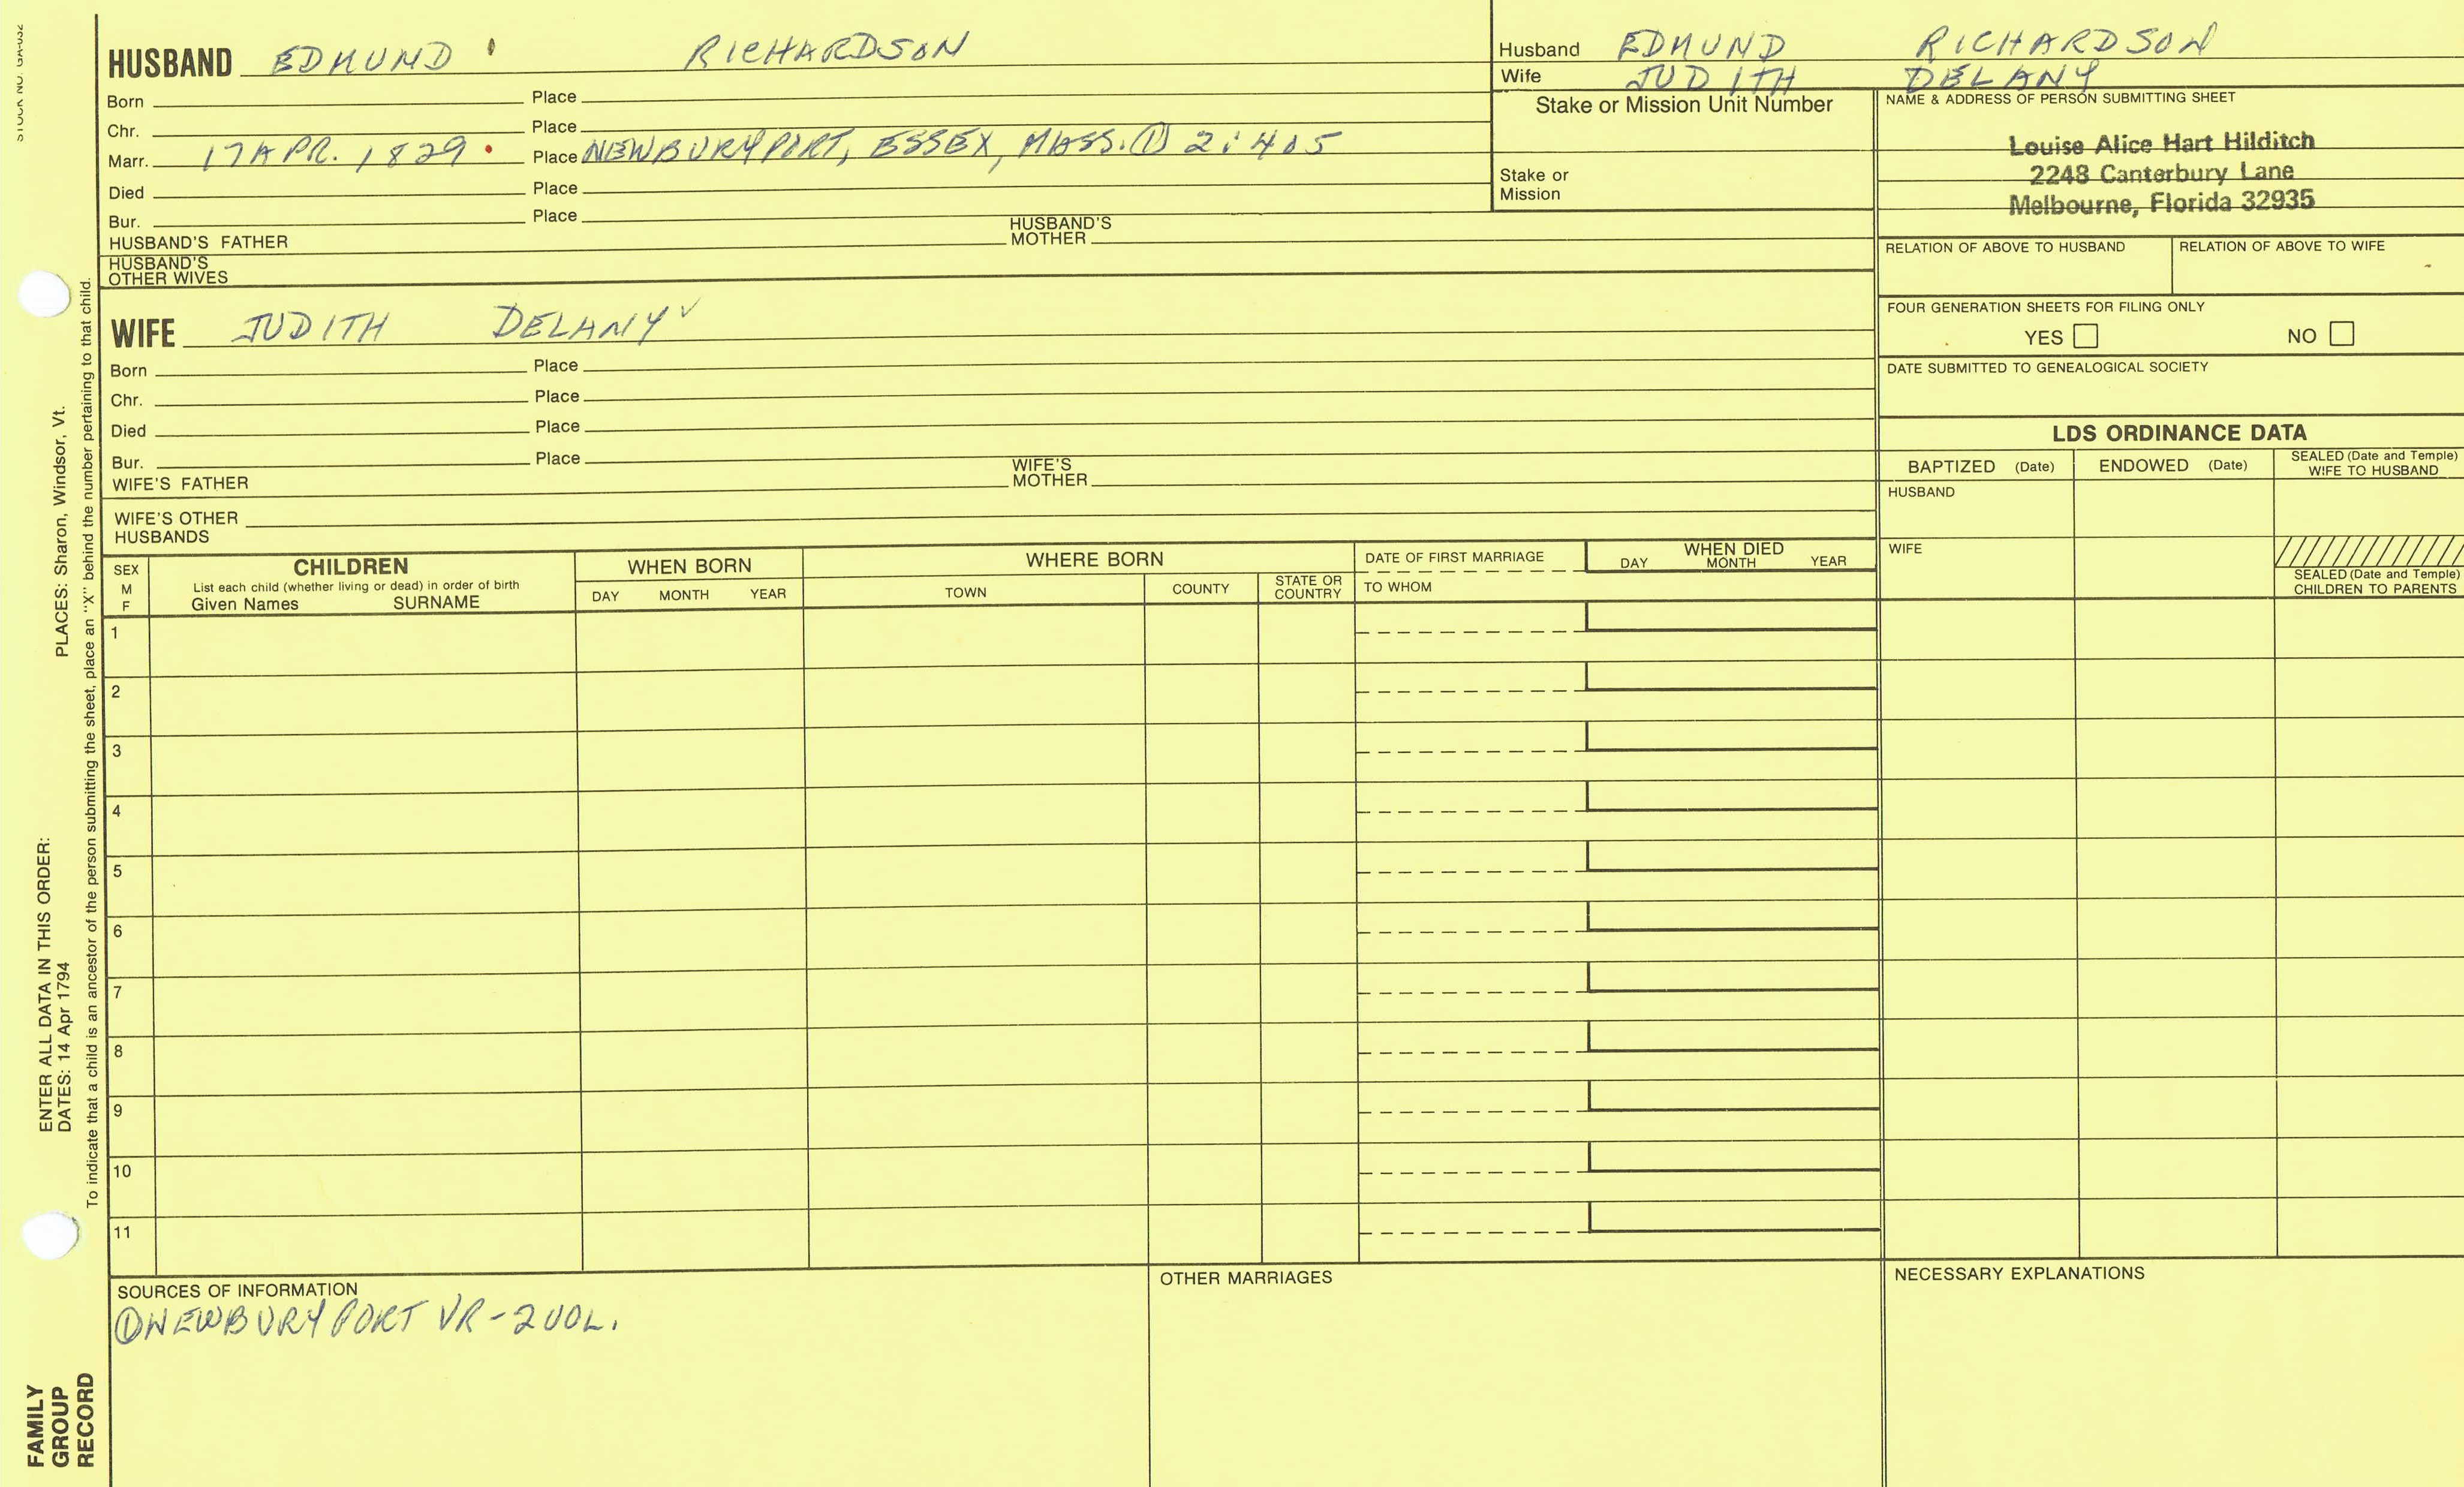 HUSBAND EDMUND RICHARDSON
Born Place
Chr. Place
Marr. 17 APR. 1829 Place NEWBURYPORT, ESSEX, MASS. ① 2:405
Died Place
Bur. Place
HUSBAND'S FATHER HUSBAND'S MOTHER
HUSBAND'S OTHER WIVES
WIFE JUDITH DELANY
Born Place
Chr. Place
Died Place
Bur. Place
WIFE'S FATHER WIFE'S MOTHER
WIFE'S OTHER HUSBANDS
Husband EDMUND RICHARDSON
Wife JUDITH DELANY
Stake or Mission Unit Number
Stake or Mission
NAME & ADDRESS OF PERSON SUBMITTING SHEET
Louise Alice Hart Hilditch
2248 Canterbury Lane
Melbourne, Florida 32935
RELATION OF ABOVE TO HUSBAND RELATION OF ABOVE TO WIFE
FOUR GENERATION SHEETS FOR FILING ONLY
YES NO
DATE SUBMITTED TO GENEALOGICAL SOCIETY
LDS ORDINANCE DATA
BAPTIZED (Date) ENDOWED (Date) SEALED (Date and Temple) WIFE TO HUSBAND
HUSBAND
WIFE
SEALED (Date and Temple) CHILDREN TO PARENTS
SEX M F
CHILDREN
List each child (whether living or dead) in order of birth
Given Names SURNAME
WHEN BORN
DAY MONTH YEAR
WHERE BORN
TOWN COUNTY STATE OR COUNTRY
DATE OF FIRST MARRIAGE
TO WHOM
WHEN DIED
DAY MONTH YEAR
1
2
3
4
5
6
7
8
9
10
11
SOURCES OF INFORMATION
① NEWBURYPORT VR - 2 VOL.
OTHER MARRIAGES
NECESSARY EXPLANATIONS
ENTER ALL DATA IN THIS ORDER:
DATES: 14 Apr 1794
PLACES: Sharon, Windsor, Vt.
To indicate that a child is an ancestor of the person submitting the sheet, place an "X" behind the number pertaining to that child.
FAMILY
GROUP
RECORD